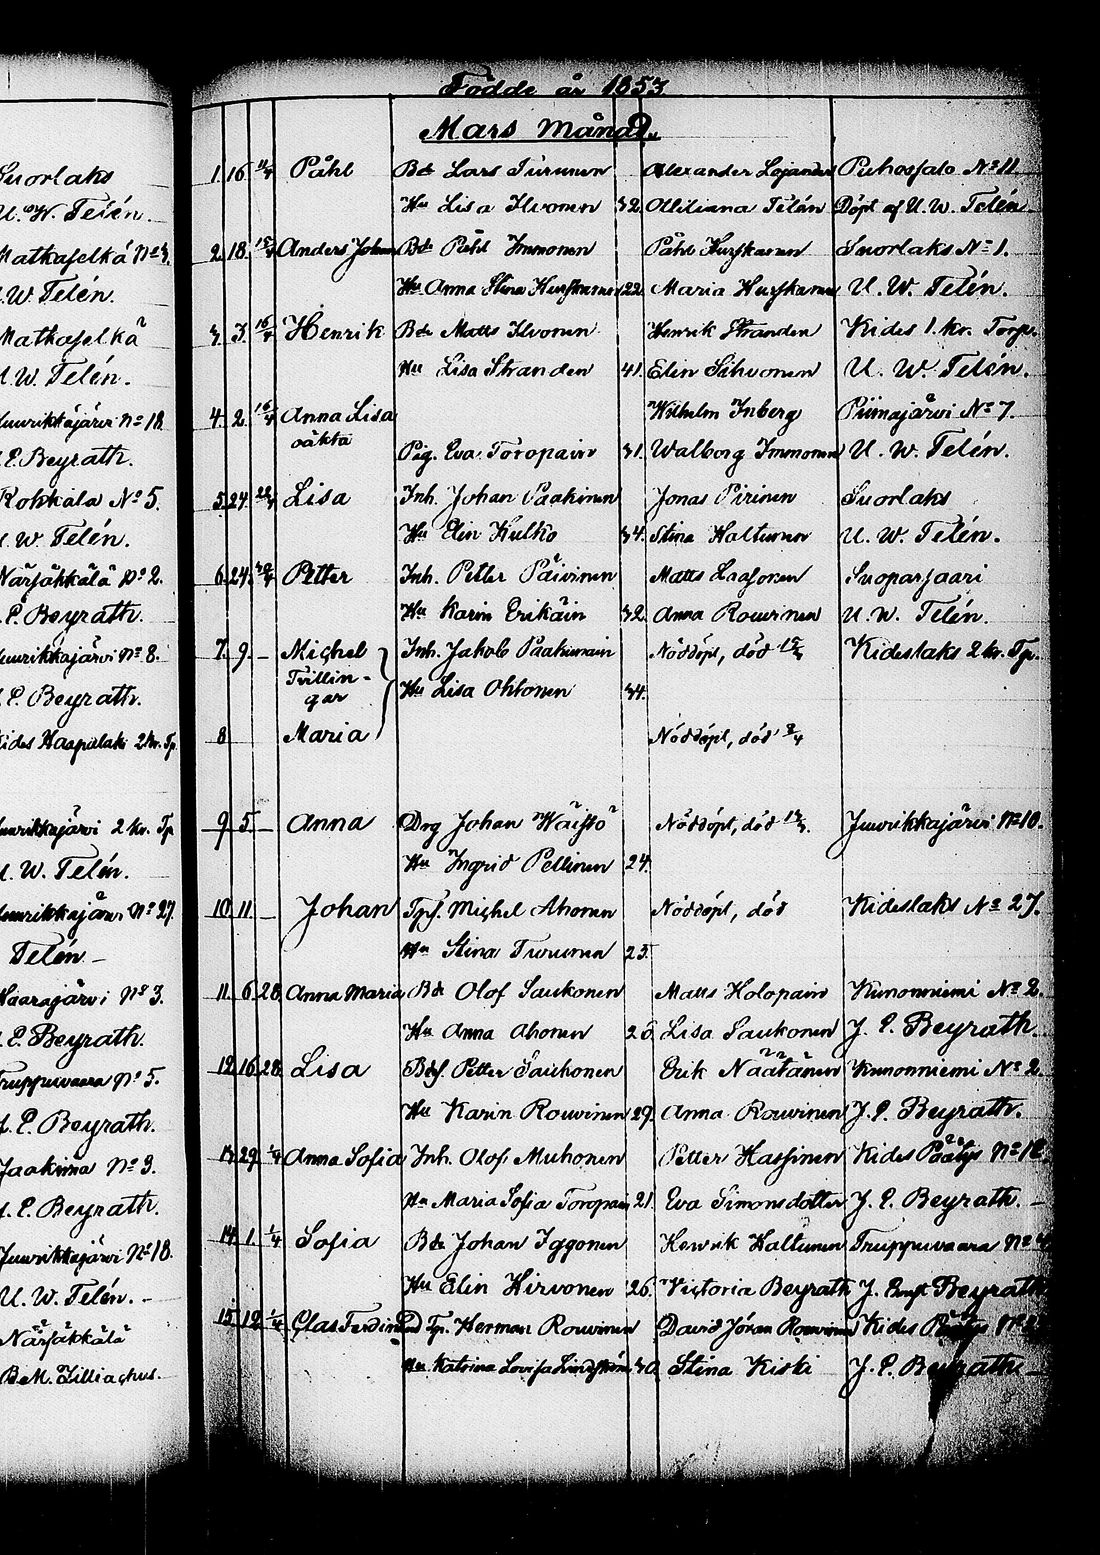 Suorlaks
U. W. Telén.
Matkaselkä No 3.
U. W. Telén.
Matkaselkä
U. W. Telén.
Juurikkajärvi No 18
J. P. Beyrath.
Kokkala No 5.
U. W. Telén.
Närsäkkälä No 2.
J. P. Beyrath.
Juurikkajärvi No 8.
J. P. Beyrath.
Kides Haapalaks 2 kv. Tp.
Juurikkajärvi 2 kv. Tp
U. W. Telén.
Juurikkajärvi No 27.
Telén
Haarajärvi No 3.
J. P. Beyrath.
Truppuvaara No 5.
J. P. Beyrath.
Jaakima No 3.
J. P. Beyrath.
Juurikkajärvi No 18.
U. W. Telén.
Närsäkkälä
B. M. Lilliachus.
Födde år 1853
Mars Månad.
1 16 Påhl Bde Lars Turunen Alexander Puhossalo No 11
Hu Lisa Ilvonen 32. Telén Döpt af U. W. Telén
2 18. Anders Johan Bde Påhl Immonen Påhl Hurskainen Suorlaks No 1.
Hu Anna Stina Hurskainen 22. Maria Hurskainen U. W. Telén.
3 3 16/4 Henrik Bde Matts Ilvonen Henrik Stranden Kides 1. kv. Torp.
Hu Lisa Stranden 41. Elin Sihvonen U. W. Telén.
4. 2. 16/4 Anna Lisa Wilhelm Inberg Piimajärvi No 7.
oäkta
Pig. Eva Toropain 31. Walborg Immonen U. W. Telén.
5. 24. Lisa Inh. Johan Paakinen Jonas Pirinen Suorlaks
Hu Elin Kulko 34. Stina Haltunen U. W. Telén.
6. 24. Petter Inh. Petter Päivinen Matts Laasonen Suoparsaari
Hu Karin Erikäin 32. Anna Rouvinen U. W. Telén.
7. 9. – Michel Inh. Jakob Paakunain Nöddöpt, död Kideslaks 2 kv. Tp.
Tvillin-
gar Hu Lisa Ohtonen 34.
8 Maria Nöddöpt, död
9 5. – Anna Drg Johan Wäistö Nöddöpt, död Juurikkajärvi No 10.
Hu Ingrid Pellinen 24.
10 11 – Johan Tps. Michel Ahonen Nöddöpt, död Kideslaks No 27.
Hu Stina Turunen 23.
11. 6. 28. Anna Maria Bde Olof Saukonen Matts Holopain Kunonniemi No 2.
Hu Anna Ahonen Lisa Saukonen J. P. Beyrath.
12. 16. 28. Lisa Bds. Petter Saukonen Erik Näätänen Kunonniemi No 2.
Hu Karin Rouvinen 29. Anna Rouvinen J. P. Beyrath.
13. 29. 1/4 Anna Sofia Inh. Olof Muhonen Petter Hassinen Kides Päätys
Hu Maria Sofia Toropain 21. Eva Simonsdotter J. P. Beyrath.
14. 1. 1/4 Sofia Bde Johan Iggonen Henrik Haltunen Truppuvaara No
Hu Elin Hirvonen 26. Victoria Beyrath J. Beyrath
15. 12. 1/4 Clas Ferdinand Tp. Herman Rouvinen David Jöran Rouvinen Kides Päätys
Hu Katrina Lovisa Lindström 30. Stina Kiski J. P. Beyrath.